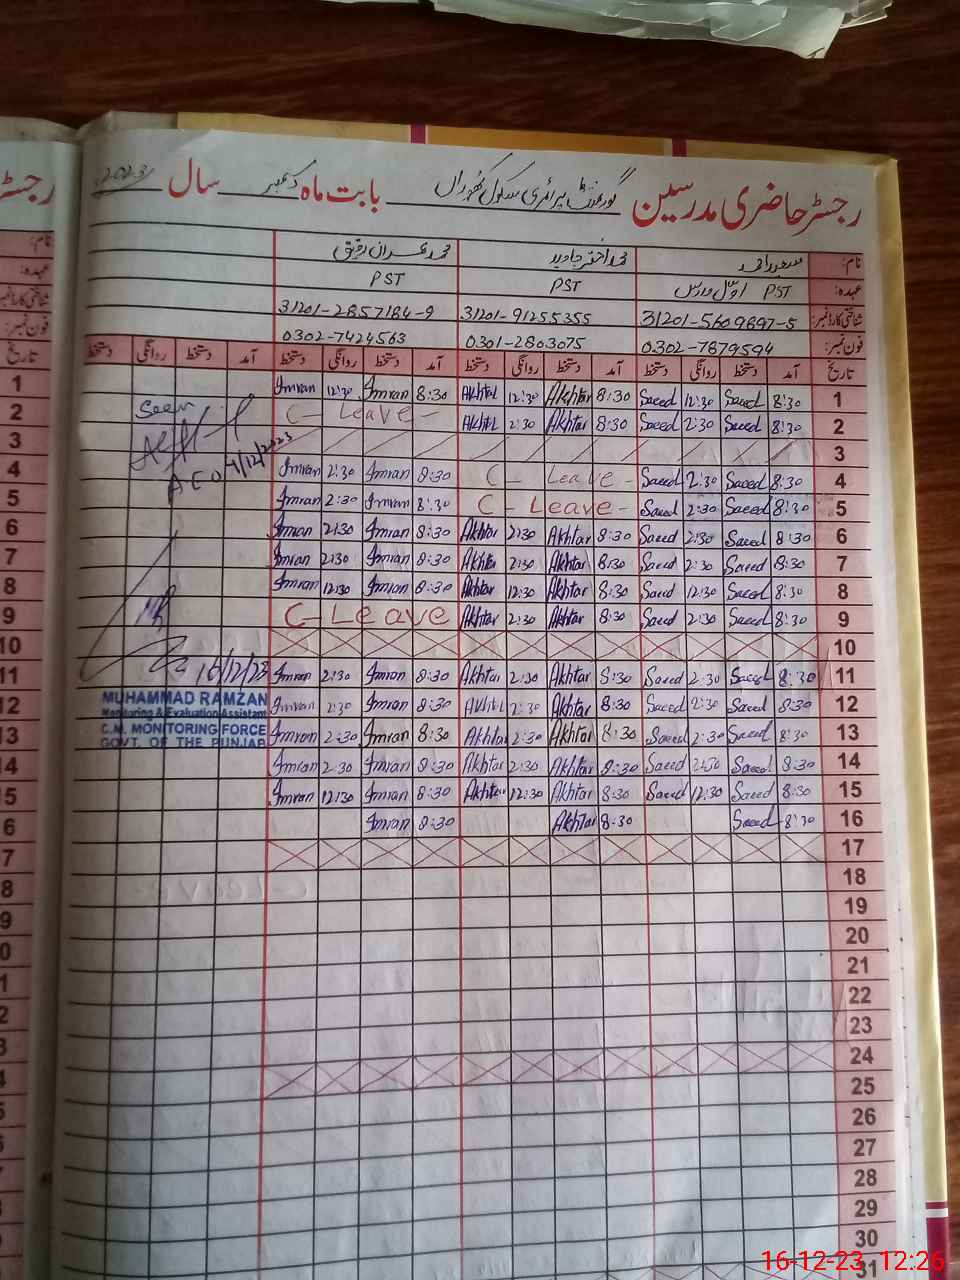 رجسٹر حاضری مدرسین گورنمنٹ پرائمری سکول کھوراں بابت ماہ دسمبر سال 2023
نام: سعید احمد محمد اختر جاوید محمد عمران رفیق
عہدہ: PST اول مدرس PST PST
شناختی کارڈ نمبر: 31201-5609897-5 31201-91255355 31201-2857184-9
فون نمبر: 0302-7879594 0301-2803075 0302-7424563
تاریخ آمد دستخط روانگی دستخط آمد دستخط روانگی دستخط آمد دستخط روانگی دستخط آمد دستخط روانگی دستخط
Imran 12:30 Imran 8:30 Akhtar 12:30 Akhtar 8:30 Saeed 12:30 Saeed 8:30 1
C - Leave - Akhtar 2:30 Akhtar 8:30 Saeed 2:30 Saeed 8:30 2
3
Imran 2:30 Imran 8:30 C - Leave - Saeed 2:30 Saeed 8:30 4
Imran 2:30 Imran 8:30 C - Leave - Saeed 2:30 Saeed 8:30 5
Imran 2:30 Imran 8:30 Akhtar 2:30 Akhtar 8:30 Saeed 2:30 Saeed 8:30 6
Imran 2:30 Imran 8:30 Akhtar 2:30 Akhtar 8:30 Saeed 2:30 Saeed 8:30 7
Imran 12:30 Imran 8:30 Akhtar 12:30 Akhtar 8:30 Saeed 12:30 Saeed 8:30 8
C - Leave Akhtar 2:30 Akhtar 8:30 Saeed 2:30 Saeed 8:30 9
10
Imran 2:30 Imran 8:30 Akhtar 2:30 Akhtar 8:30 Saeed 2:30 Saeed 8:30 11
Imran 2:30 Imran 8:30 Akhtar 2:30 Akhtar 8:30 Saeed 2:30 Saeed 8:30 12
Imran 2:30 Imran 8:30 Akhtar 2:30 Akhtar 8:30 Saeed 2:30 Saeed 8:30 13
Imran 2:30 Imran 8:30 Akhtar 2:30 Akhtar 8:30 Saeed 2:30 Saeed 8:30 14
Imran 12:30 Imran 8:30 Akhtar 12:30 Akhtar 8:30 Saeed 12:30 Saeed 8:30 15
Imran 8:30 Akhtar 8:30 Saeed 8:30 16
17
18
19
20
21
22
23
24
25
26
27
28
29
30
31
Seen
AEO 4/12/2023
16/12/23
MUHAMMAD RAMZAN
Monitoring & Evaluation Assistant
C.M. MONITORING FORCE
GOVT. OF THE PUNJAB
16-12-23 12:26